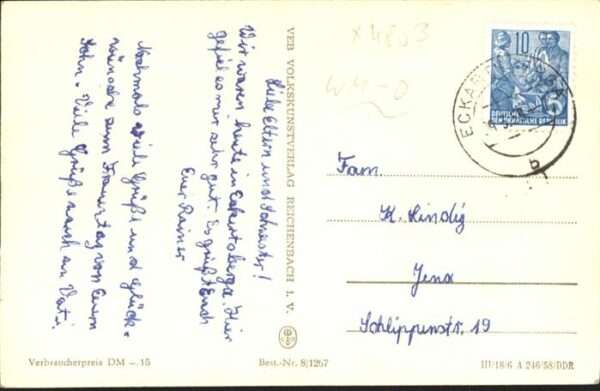 Liebe Eltern und Schwester!
Wir waren heute in Eckartsberga. Hier
gefiel es mir sehr gut. Es grüßt Euch
Euer Rainer
Nochmals viele Grüße und Glück-
wünsche zum Frauentag von Eurem
Sohn. Viele Grüße auch an Vati.
VEB VOLKSKUNSTVERLAG REICHENBACH I. V.
x4803
10
DEUTSCHE
DEMOKRATISCHE REPUBLIK
5
b
Fam.
K. Lindig
Jena
Schlippenstr. 19
Verbraucherpreis DM –.15
Best.-Nr. 8/1267
III/18/6 A 246/58/DDR